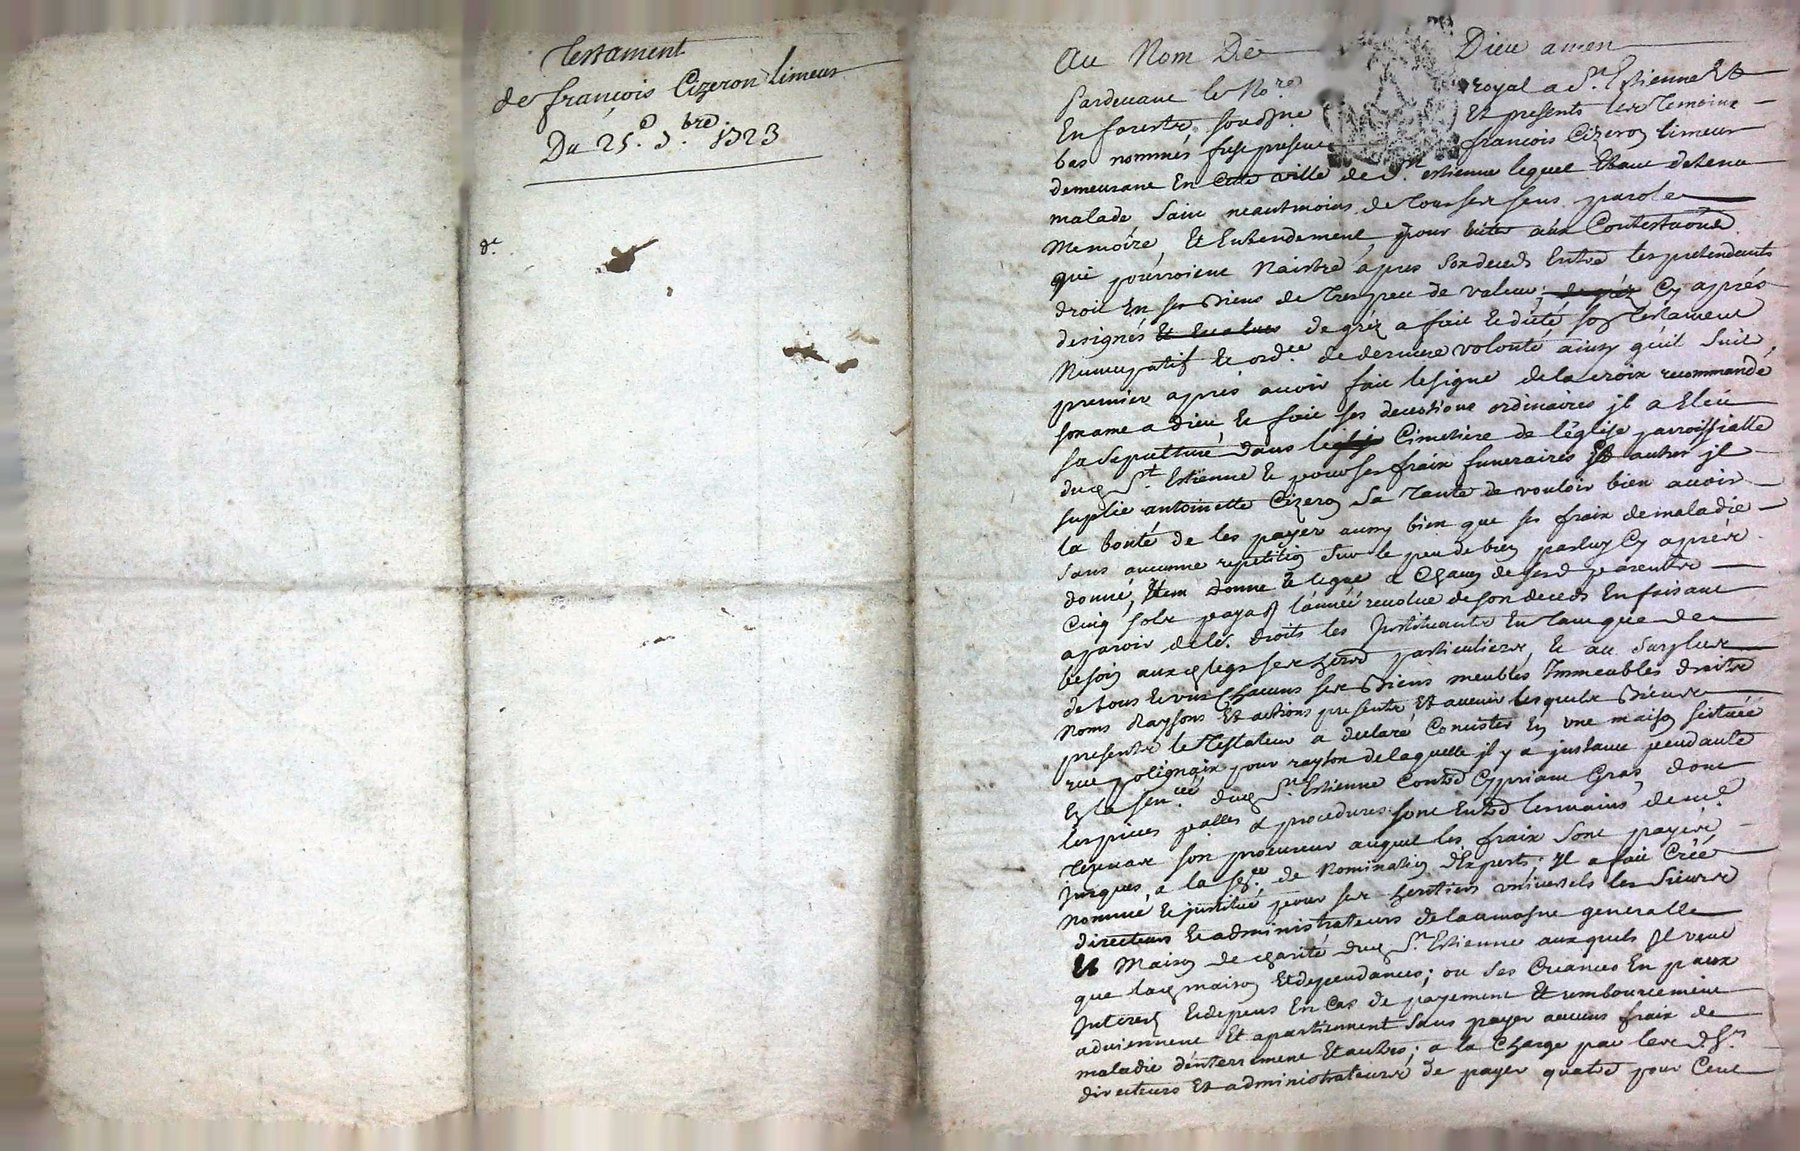 Testament
de françois Cizeron limeur
Du 25.e 7.bre 1723
d.e
Au Nom De Dieu amen
Pardevant le No.re royal a St. Estienne Et
En forests soussigne Et presents les temoins
bas nommés fust present françois Cizeron limeur
demeurant En cette ville de St. estienne lequel Etant detenu
malade sain neantmoins de tous ses sens parole
Memoire, Et Entendement, pour eviter aux Contestations
qui pourroient Naistre apres son deced Entre les pretendants
droit En ses Biens de tres peu de valeur, de gréz Cy aprés
designés de gréz a fait Et dicté son Testament
Nuncupatif Et ord.ce de derniere volonté ainsy qu'il suit
premier aprés avoir fait le signe de la croix recommandé
son ame a Dieu, Et fait ses devotions ordinaires jl a Eleu
sa sepulture dans le Cimetiere de l'église parroissialle
dud St. Estienne Et pour ses fraix funeraires Et autres jl
suplie antoinette Cizeron Sa Tante de vouloir bien avoir
la bonté de les payer aussy bien que ses fraix de maladie
sans aucunne repetition sur le peu de bien par luy Cy aprés
donné, Item Donne Et legue a Chacun de ses d parents
Cinq sols payab l'année revolue de son deceds En faisant
aparoir de les droits les Jnstituants En tant que de
besoin auxd legs ses herrs particuliers, Et au surplus
de tous Et uns Chacuns ses Biens meubles Immeubles droits
Noms Raysons Et actions presents Et avenir lesquels Biens
presents le Testateur a declaré Consister En une maison scituée
rue polignaix pour rayson de laquelle jl y a jnstance pendante
En la sen.cée dud St. Estienne Contre Cyprian Gras, dont
les pieces & procedures sont Entre les mains de me.
son procureur auquel les fraix sont payés
jusques a la de Nomination d'Experts. Jl a fait Créé
Nommé Et jnstitué pour ses heritiers universels les Sieurs
directeurs Et administrateurs de la aumosne generalle
Et Maison de charité dud St. Estienne auxquels Jl veut
que lad maison Et dependances, ou ses Creances En
Jnterest Et depens En Cas de payement Et rembourcement
adviennent Et apartiennent sans payer aucuns fraix de
maladie d'enterrement Et autres, a la Charge par les d. Srs.
directeurs Et administrateurs de payer quatre pour Cent